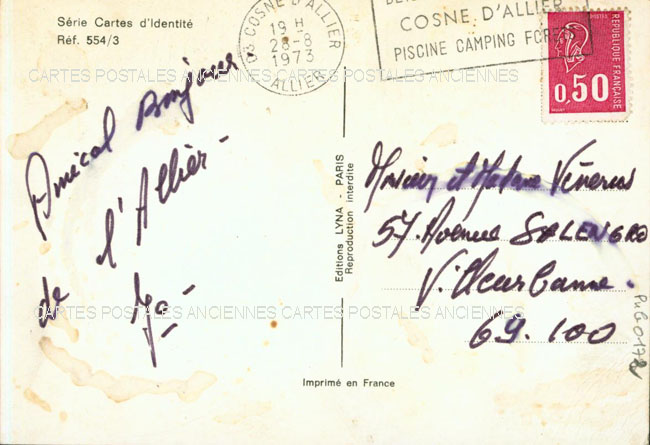 Série Cartes d'Identité
Réf. 554/3
03 COSNE D'ALLIER
19 H
28-8
1973
ALLIER
COSNE D'ALLIER
PISCINE CAMPING FORET
POSTES
REPUBLIQUE FRANÇAISE
0,50
CARTES POSTALES ANCIENNES CARTES POSTALES ANCIENNES
Amical Bonjour
de l'Allier -
Editions LYNA - PARIS
Reproduction interdite
Monsieur et Madame
57. Avenue SALENGRO
Villeurbanne -
69.100
CARTES POSTALES ANCIENNES CARTES POSTALES ANCIENNES
Imprimé en France